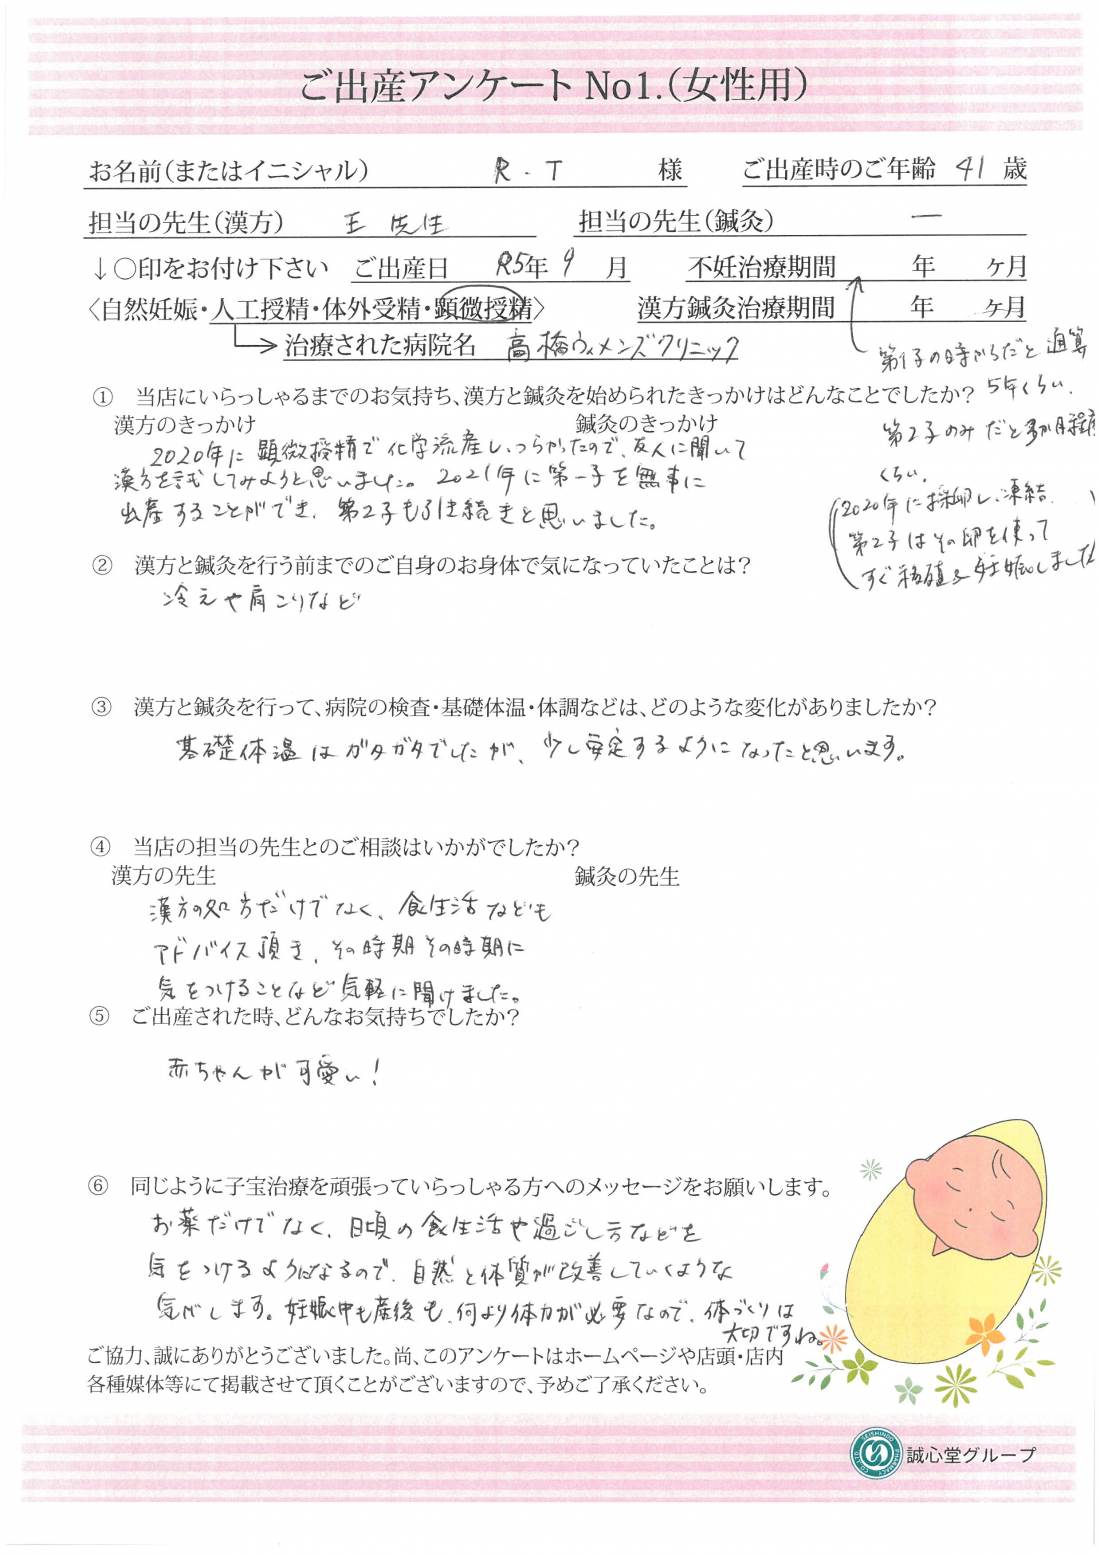 ご出産アンケート No1.(女性用)
お名前(またはイニシャル) R.T 様 ご出産時のご年齢 41 歳
担当の先生(漢方) 王先生 担当の先生(鍼灸) ー
↓○印をお付け下さい ご出産日 R5年 9 月 不妊治療期間 年 ヶ月
〈自然妊娠・人工授精・体外受精・顕微授精〉 漢方鍼灸治療期間 年 ヶ月
治療された病院名 高橋ウィメンズクリニック
第1子の時からだと通算
5年くらい.
第2子のみだと 月程度
くらい.
(2020年に採卵し、凍結.
第2子はその卵を使って
すぐ移植&妊娠しました)
① 当店にいらっしゃるまでのお気持ち、漢方と鍼灸を始められたきっかけはどんなことでしたか?
漢方のきっかけ 鍼灸のきっかけ
2020年に 顕微授精で化学流産しつらかったので、友人に聞いて
漢方を試してみようと思いました。2021年に第一子を無事に
出産することができ、第2子も引き続きと思いました。
② 漢方と鍼灸を行う前までのご自身のお身体で気になっていたことは?
冷えや肩こりなど
③ 漢方と鍼灸を行って、病院の検査・基礎体温・体調などは、どのような変化がありましたか?
基礎体温はガタガタでしたが、少し安定するようになったと思います。
④ 当店の担当の先生とのご相談はいかがでしたか?
漢方の先生 鍼灸の先生
漢方の処方だけでなく、食生活なども
アドバイス頂き、その時期その時期に
気をつけることなど気軽に聞けました。
⑤ ご出産された時、どんなお気持ちでしたか?
赤ちゃんが可愛い!
⑥ 同じように子宝治療を頑張っていらっしゃる方へのメッセージをお願いします。
お薬だけでなく、日頃の食生活や過ごし方などを
気をつけるようになるので、自然と体質が改善していくような
気がします。妊娠中も産後も、何より体力が必要なので、体づくりは
大切ですね。
ご協力、誠にありがとうございました。尚、このアンケートはホームページや店頭・店内
各種媒体等にて掲載させて頂くことがございますので、予めご了承ください。
SEISHINDO PHARMACY CO.LTD 誠心堂グループ